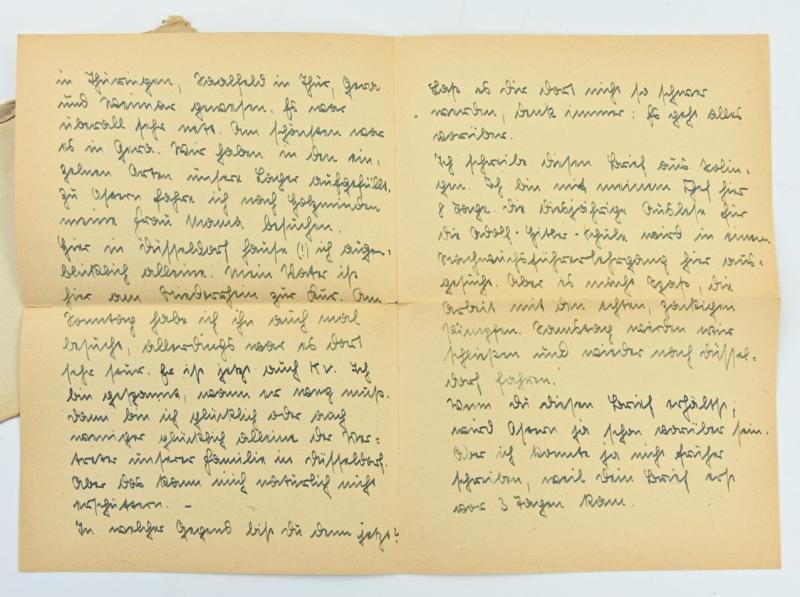 in Thüringen, Saalfeld in Thür, Gera
und Weimar gewesen. Es war
überall sehr nett. Am schönsten war
es in Gera. Wir haben in den ein-
zelnen Orten unsere Lager aufgefüllt.
Zu Ostern fahre ich nach Holzminden
meine Frau Mama besuchen.
Hier in Düsseldorf hause (!) ich augen-
blicklich alleine. Mein Vater ist
hier am Niederrhein zur Kur. Am
Sonntag habe ich ihn auch mal
besucht, allerdings war es dort
sehr teuer. Er ist jetzt auch KV. Ich
bin gespannt, wann er weg muß.
Dann bin ich glücklich oder auch
weniger glücklich alleine der Ver-
treter unserer Familie in Düsseldorf.
Aber das kann mich natürlich nicht
erschüttern. –
In welcher Gegend bist du denn jetzt?
Laß es dir dort nicht so schwer
werden, denk immer: Es geht alles
vorüber.
Ich schreibe diesen Brief aus Solin-
gen. Ich bin mit meinem Chef hier
8 Tage. Die diesjährige Auslese für
die Adolf-Hitler-Schule wird in einem
Nachwuchsführerlehrgang hier aus-
gesucht. Aber es macht Spaß, die
Arbeit mit den echten, zackigen
Pimpfen. Samstag werden wir
schließen und wieder nach Düssel-
dorf fahren.
Wenn du diesen Brief erhältst,
wird Ostern ja schon vorüber sein.
Aber ich konnte ja nicht früher
schreiben, weil dein Brief erst
vor 3 Tagen kam.